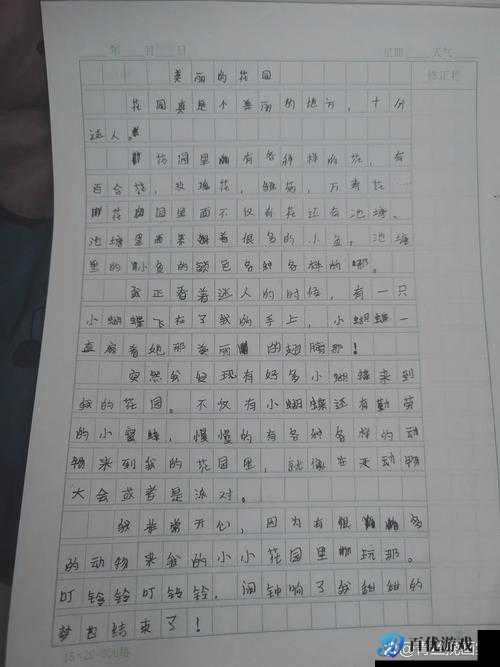 年 月 日 星期 天气
美丽的花园 修正栏
花园真是个美丽的地方，十分
迷人。
花园里有各种样的花，有
百合花，玫瑰花，雏菊，万寿花
花园里面不仅有花还有池塘。
池塘里面来着很多的小鱼，池塘
里的小鱼的颜色各种各样的哪。
我正看着迷人的时候，有一只
小蝴蝶飞在了我的手上，小蝴蝶一
直扇着她那美丽的翅膀那！
突然我发现有好多小蝴蝶来到
我的花园。不仅有小蝴蝶还有勤劳
的小蜜蜂，慢慢的有各种各样的动
物来到我的花园里，就像在开动物
大会或者是派对。
我非常开心，因为有很多
的动物来我的小小花园里玩那。
叮铃铃叮铃铃，闹钟响了我甜甜的
梦也结束了！
15×20=300格
百优游戏